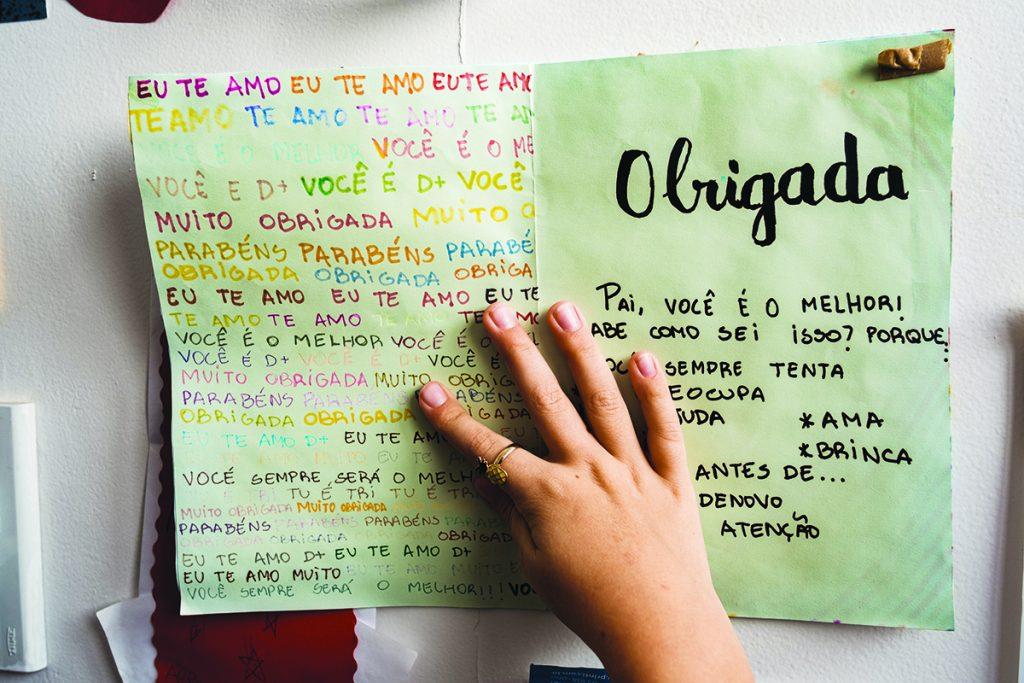 EU TE AMO EU TE AMO EU TE AMO
TE AMO TE AMO TE AMO TE AM
VOCÊ É O MELHOR VOCÊ É O ME
VOCÊ E D+ VOCÊ É D+ VOCÊ
MUITO OBRIGADA MUITO O
PARABÉNS PARABÉNS PARABÉ
OBRIGADA OBRIGADA OBRIGA
EU TE AMO EU TE AMO EU TE
TE AMO TE AMO TE AMO TE AMO
VOCÊ É O MELHOR VOCÊ É O MEL
VOCÊ É D+ VOCÊ É D+ VOCÊ É
MUITO OBRIGADA MUITO OBRIGA
PARABÉNS PARABÉNS PARABÉNS
OBRIGADA OBRIGADA OBRIGADA
EU TE AMO D+ EU TE AMO
VOCÊ SEMPRE SERÁ O MELH
TU É TRI TU É TRI
MUITO OBRIGADA MUITO OBRIGADA
PARABÉNS PARABÉNS PARABÉNS PARAB
OBRIGADA OBRIGADA OBRIGADA
EU TE AMO D+ EU TE AMO D+
EU TE AMO MUITO EU TE AMO MUITO
VOCÊ SEMPRE SERÁ O MELHOR!!! VO
Obrigada
PAI, VOCÊ É O MELHOR!
ABE COMO SEI ISSO? PORQUE
SEMPRE TENTA
EOCUPA
UDA *AMA
*BRINCA
ANTES DE...
DENOVO
ATENÇÃO